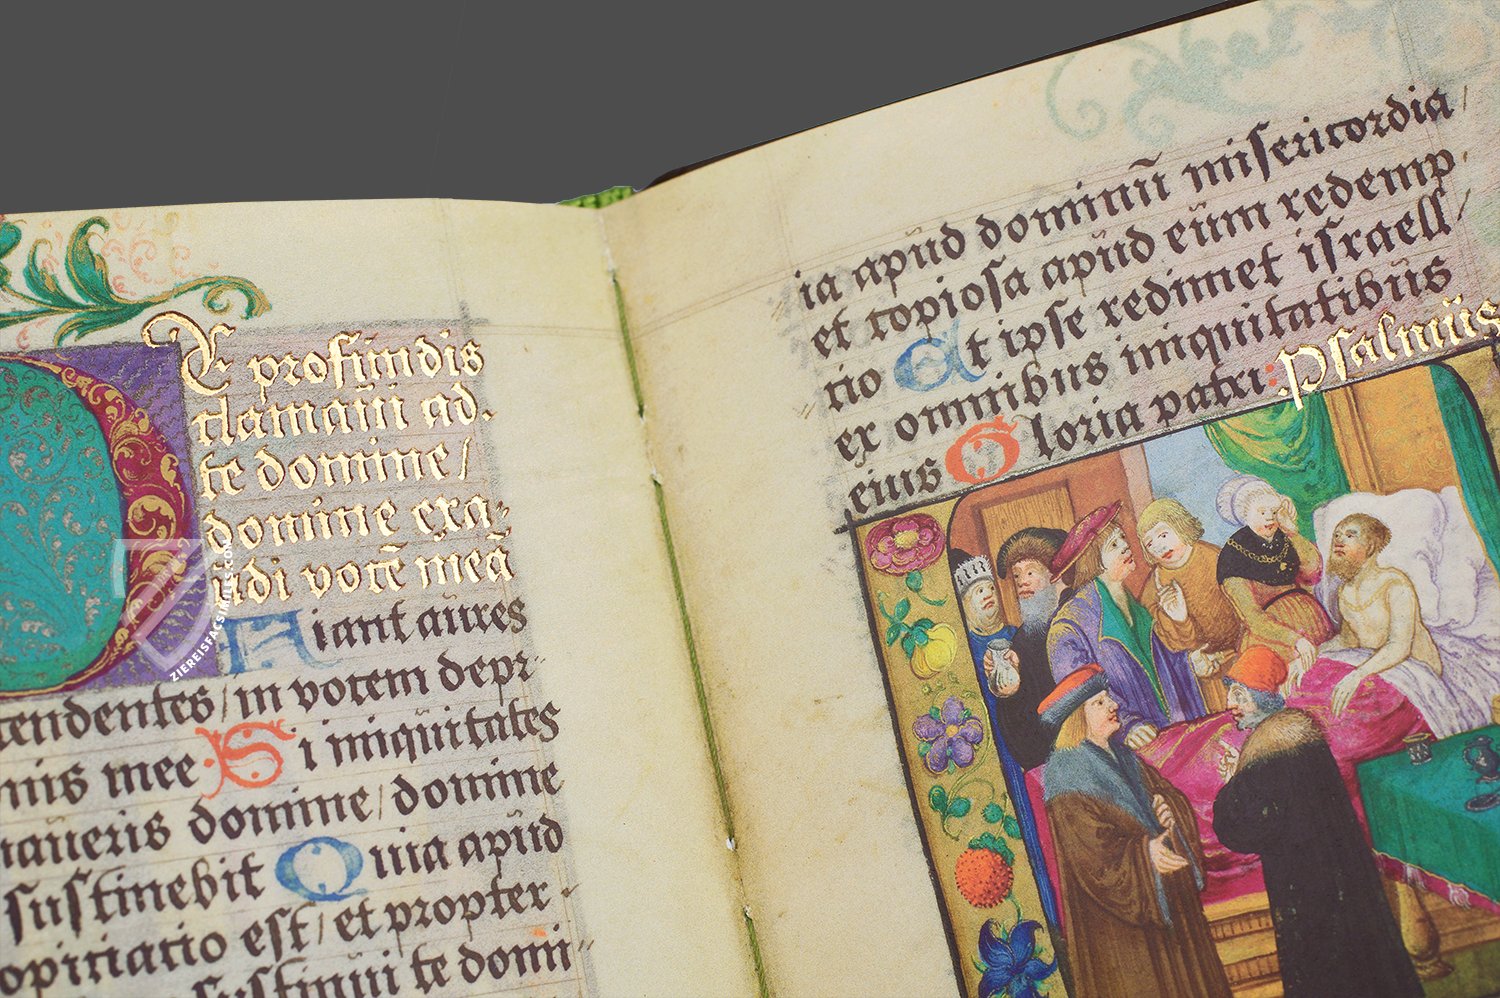 E profundis
clamaui ad.
te domine/
domine exa-
udi vocē meā
Fiant aures
tendentes/in vocem depr-
nis mee: Si iniquitates
naueris domine/domine
sustinebit Quia apud
opiciatio est/et propter-
sustinui te domi
ia apud dominū misericordia/
et copiosa apud eum redemp
tio Et ipse redimet israell/
ex omnibus iniquitatibus
eius Gloria patri: Psalmus
ZIEREISFACSIMILES.COM